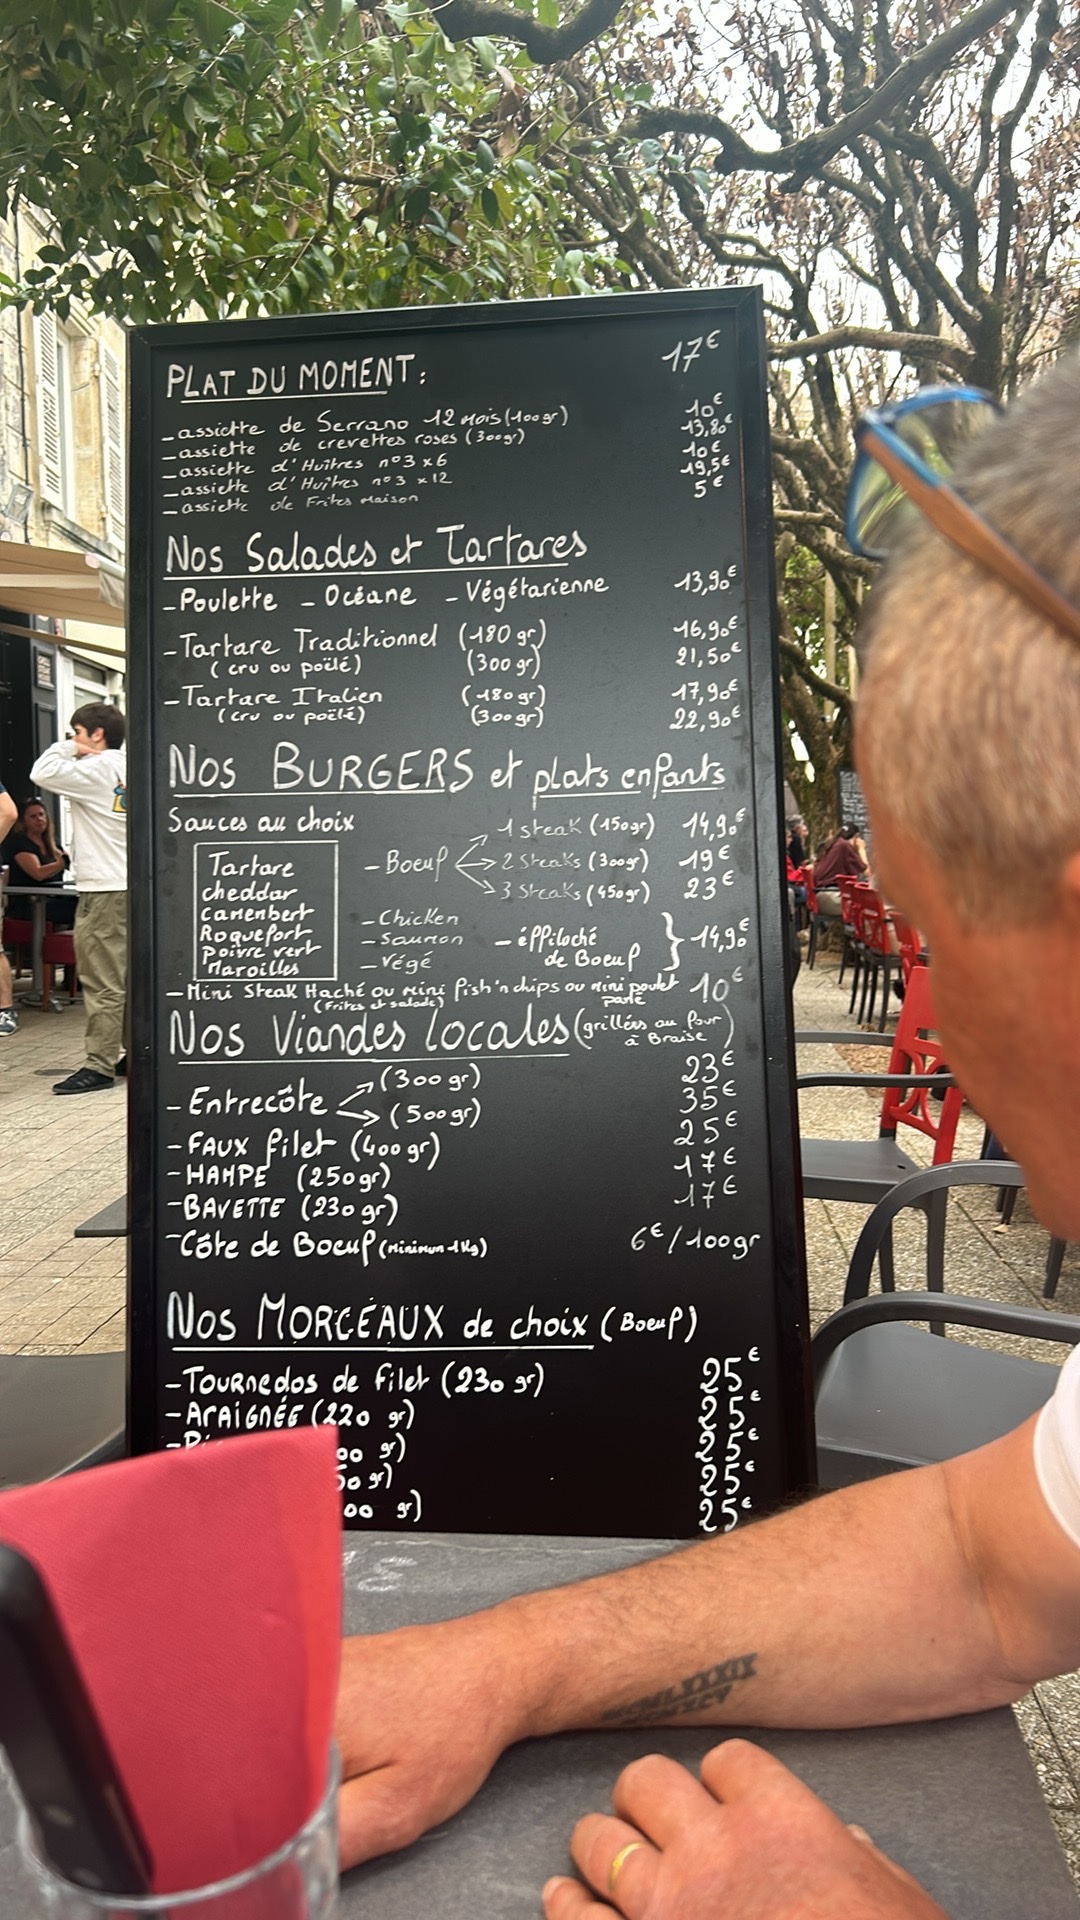 PLAT DU MOMENT: 17€
- assiette de Serrano 12 mois (100gr) 10€
- assiette de crevettes roses (300gr) 13,80€
- assiette d'Huîtres n°3 x6 10€
- assiette d'Huîtres n°3 x12 19,5€
- assiette de Frites Maison 5€
Nos Salades et Tartares
- Poulette - Océane - Végétarienne 13,90€
- Tartare Traditionnel (180 gr) 16,90€
(cru ou poêlé) (300 gr) 21,50€
- Tartare Italien (180gr) 17,90€
(cru ou poêlé) (300gr) 22,90€
Nos BURGERS et plats enfants
Sauces au choix
Tartare
cheddar
camenbert
Roquefort
Poivre vert
Maroilles
- Boeuf
1 steak (150gr) 14,90€
2 Steaks (300gr) 19€
3 Steaks (450gr) 23€
- Chicken
- Saumon
- Végé
- éffiloché
de Boeuf
14,90€
- Mini Steak Haché ou Mini fish'n chips ou mini poulet pané 10€
(Frites et salade)
Nos Viandes locales (grillées au four
à Braise)
- Entrecôte (300 gr) 23€
(500gr) 35€
- FAUX filet (400gr) 25€
- HAMPE (250gr) 17€
- BAVETTE (230gr) 17€
- Côte de Boeuf (Minimum 1Kg) 6€/100gr
Nos MORCEAUX de choix (Boeuf)
- TOURNEDOS de filet (230 gr) 25€
- ARAIGNÉE (220 gr) 25€
00 gr) 25€
50 gr) 25€
00 gr) 25€
MCMLXXXIX